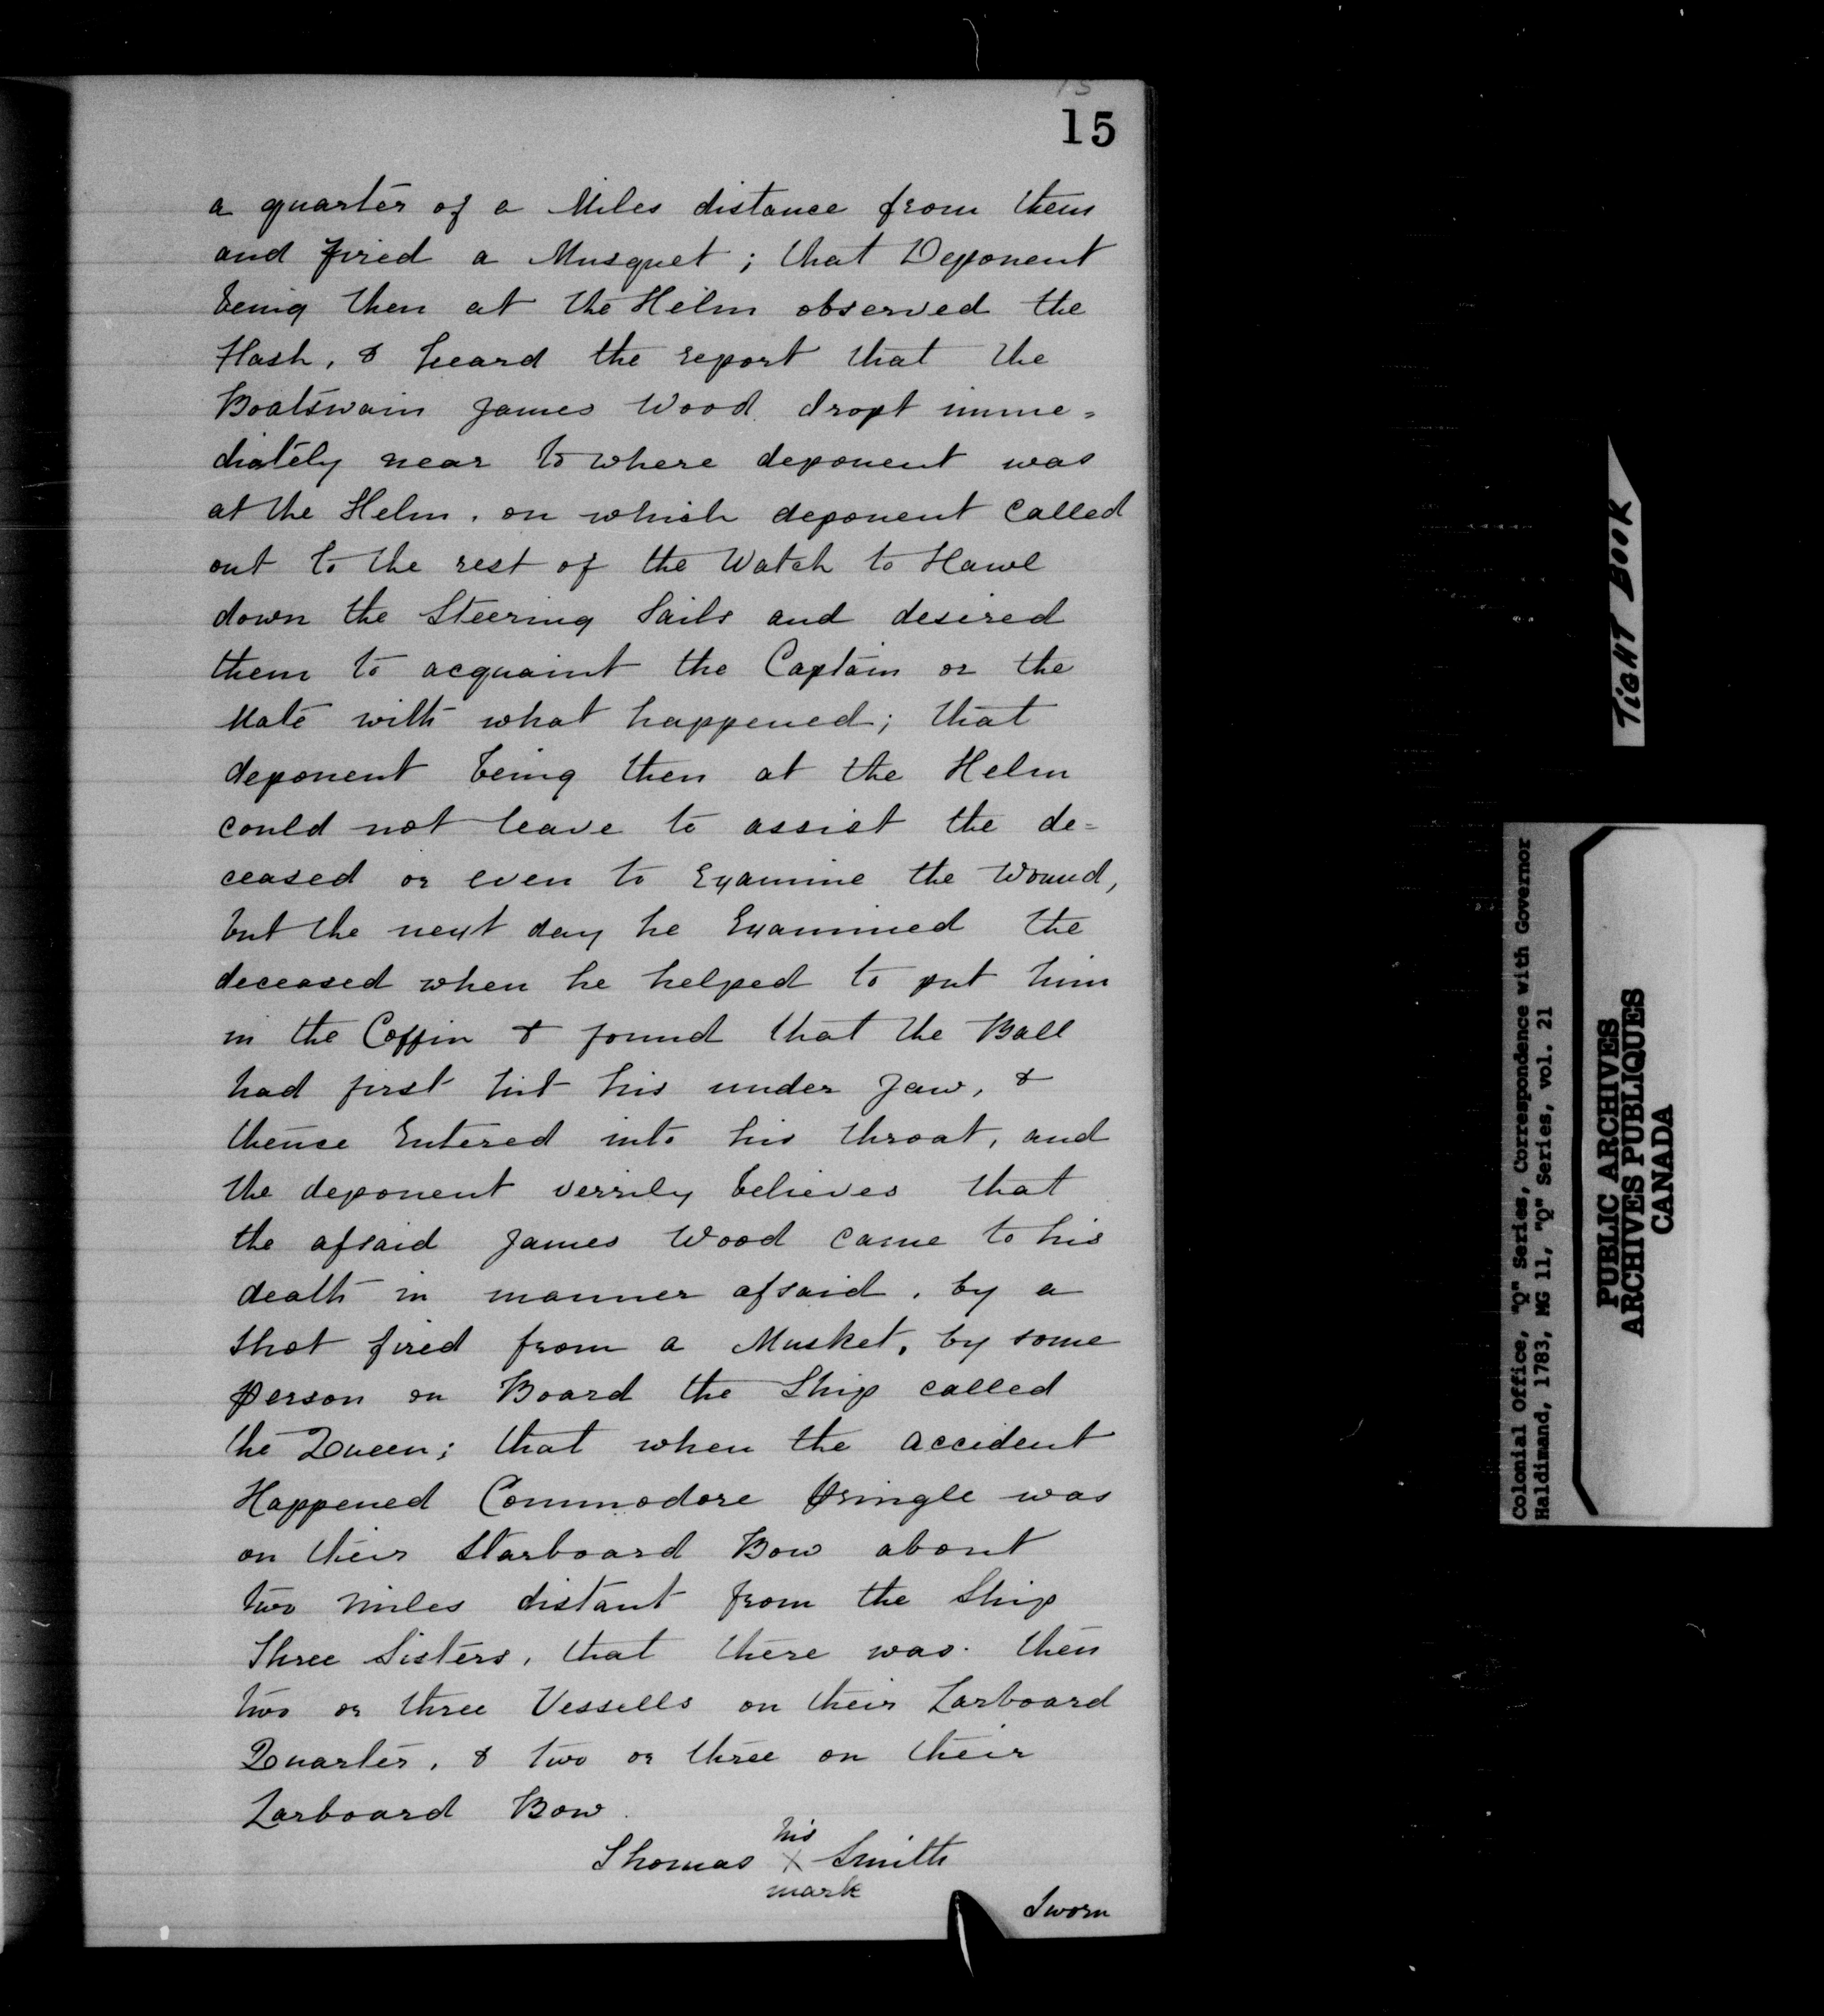 15
15
a quarter of a Miles distance from them
and fired a Musquet; that Deponent
being then at the Helm observed the
flash, & heard the report that the
Boatswain James Wood dropt imme=
diately near to where deponent was
at the Helm, on which deponent called
out to the rest of the Watch to Hawl
down the Steering Sails and desired
them to acquaint the Captain or the
Mate with what happened; that
deponent being then at the Helm
could not leave to assist the de=
ceased or even to Examine the Wound,
but the next day he Examined the
deceased when he helped to put him
in the Coffin & found that the Ball
had first hit his under Jaw, &
thence Entered into his throat, and
the deponent verrily believes that
the afsaid James Wood came to his
death in manner afsaid, by a
shot fired from a Musket, by some
person on Board the Ship called
the Queen; that when the accident
Happened Commodore Pringle was
on their Starboard Bow about
two miles distant from the Ship
Three Sisters, that there was then
two or three Vessells on their Larboard
Quarter, & two or three on their
Larboard Bow.
his
Thomas X Smith
mark
Sworn
TIGHT BOOK
Colonial Office, "Q" Series, Correspondence with Governor
Haldimand, 1783, MG 11, "Q" Series, vol. 21
PUBLIC ARCHIVES
ARCHIVES PUBLIQUES
CANADA